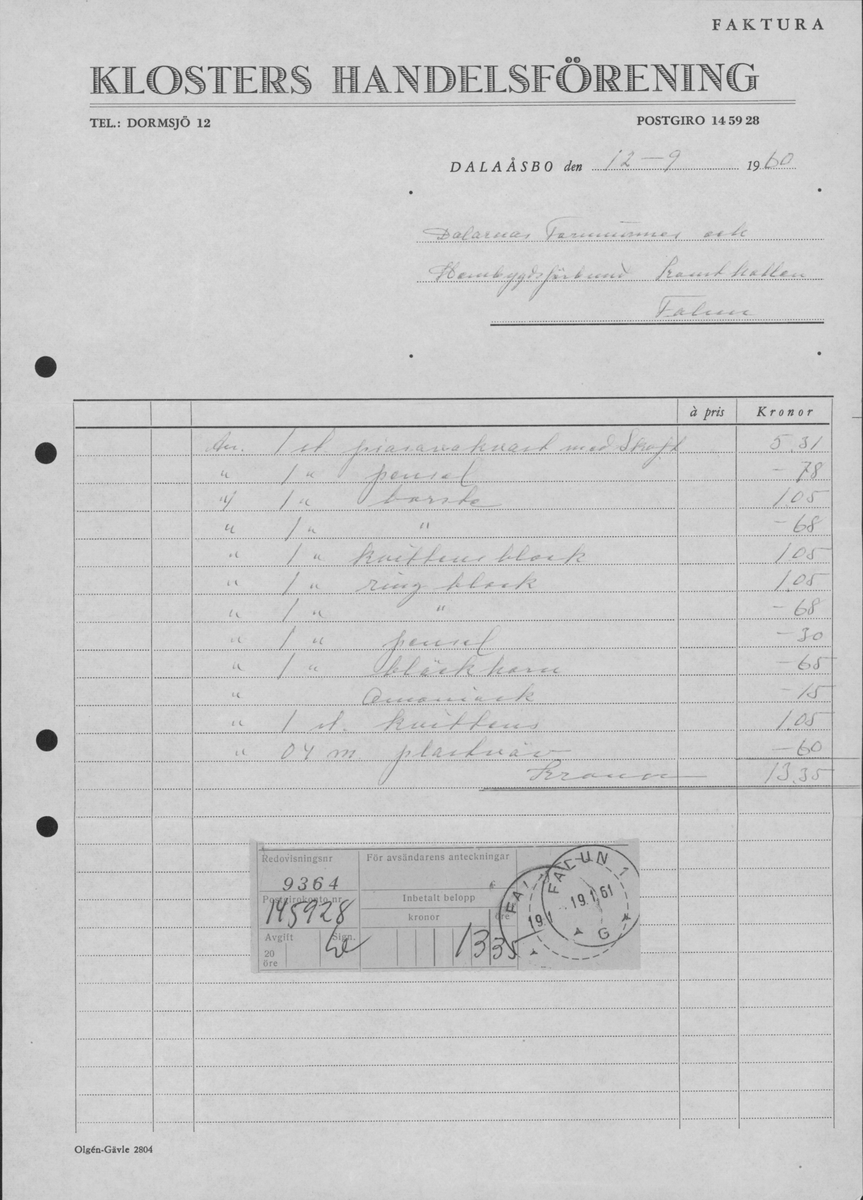 FAKTURA
KLOSTERS HANDELSFÖRENING
TEL.: DORMSJÖ 12 POSTGIRO 14 59 28
DALAÅSBO den 12-9 1960
Dalarnas Fornminnes och
Hembygdsförbund
Falun
à pris Kronor
1 st. piasavakvast med Skaft 5.31
" 1 " pensel -78
" 1 " borste 1.05
" 1 " " -68
" 1 " kvittensblock 1.05
" 1 " ringblock 1.05
" 1 " " -68
" 1 " pensel -30
" 1 " bläckhorn -65
" Amoniack -15
" 1 st. kvittens 1.05
" 04 m plastväv -60
Kronor 13.35
Redovisningsnr För avsändarens anteckningar
9364
Postgirokonto nr Inbetalt belopp
145928 kronor öre
Avgift Sign.
20 öre 13 35
FALUN 1
19.1.61
G
Olgén-Gävle 2804